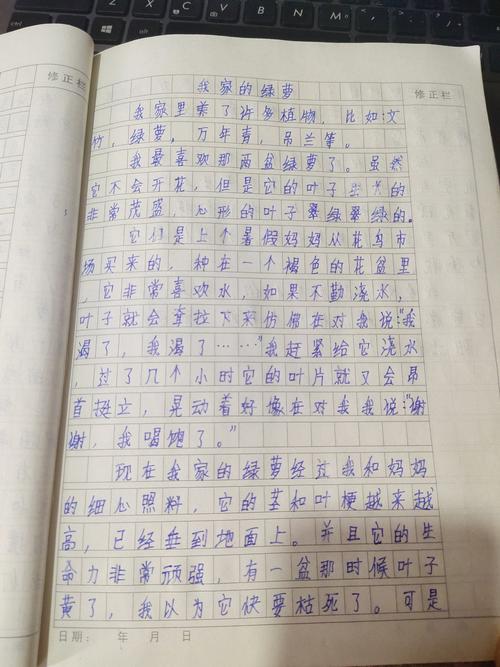 修正栏
修正栏
我家的绿萝
我家里养了许多植物，比如：文
竹，绿萝，万年青，吊兰等。
我最喜欢那两盆绿萝了。虽然
它不会开花，但是它的叶子 的
非常茂盛，心形的叶子翠绿翠绿的。
它们是上个暑假妈妈从花鸟市
场买来的，种在一个褐色的花盆里
，它非常喜欢水，如果不勤浇水，
叶子就会耷拉下来仿佛在对我说：“我
渴了，我渴了……”我赶紧给它浇水
，过了几个小时它的叶片就又会昂
首挺立，晃动着好像在对我我说：“谢
谢，我喝饱了。”
现在我家的绿萝经过我和妈妈
的细心照料，它的茎和叶梗越来越
高，已经垂到地面上。并且它的生
命力非常顽强，有一盆那时候叶子
黄了，我以为它快要枯死了。可是
日期： 年 月 日